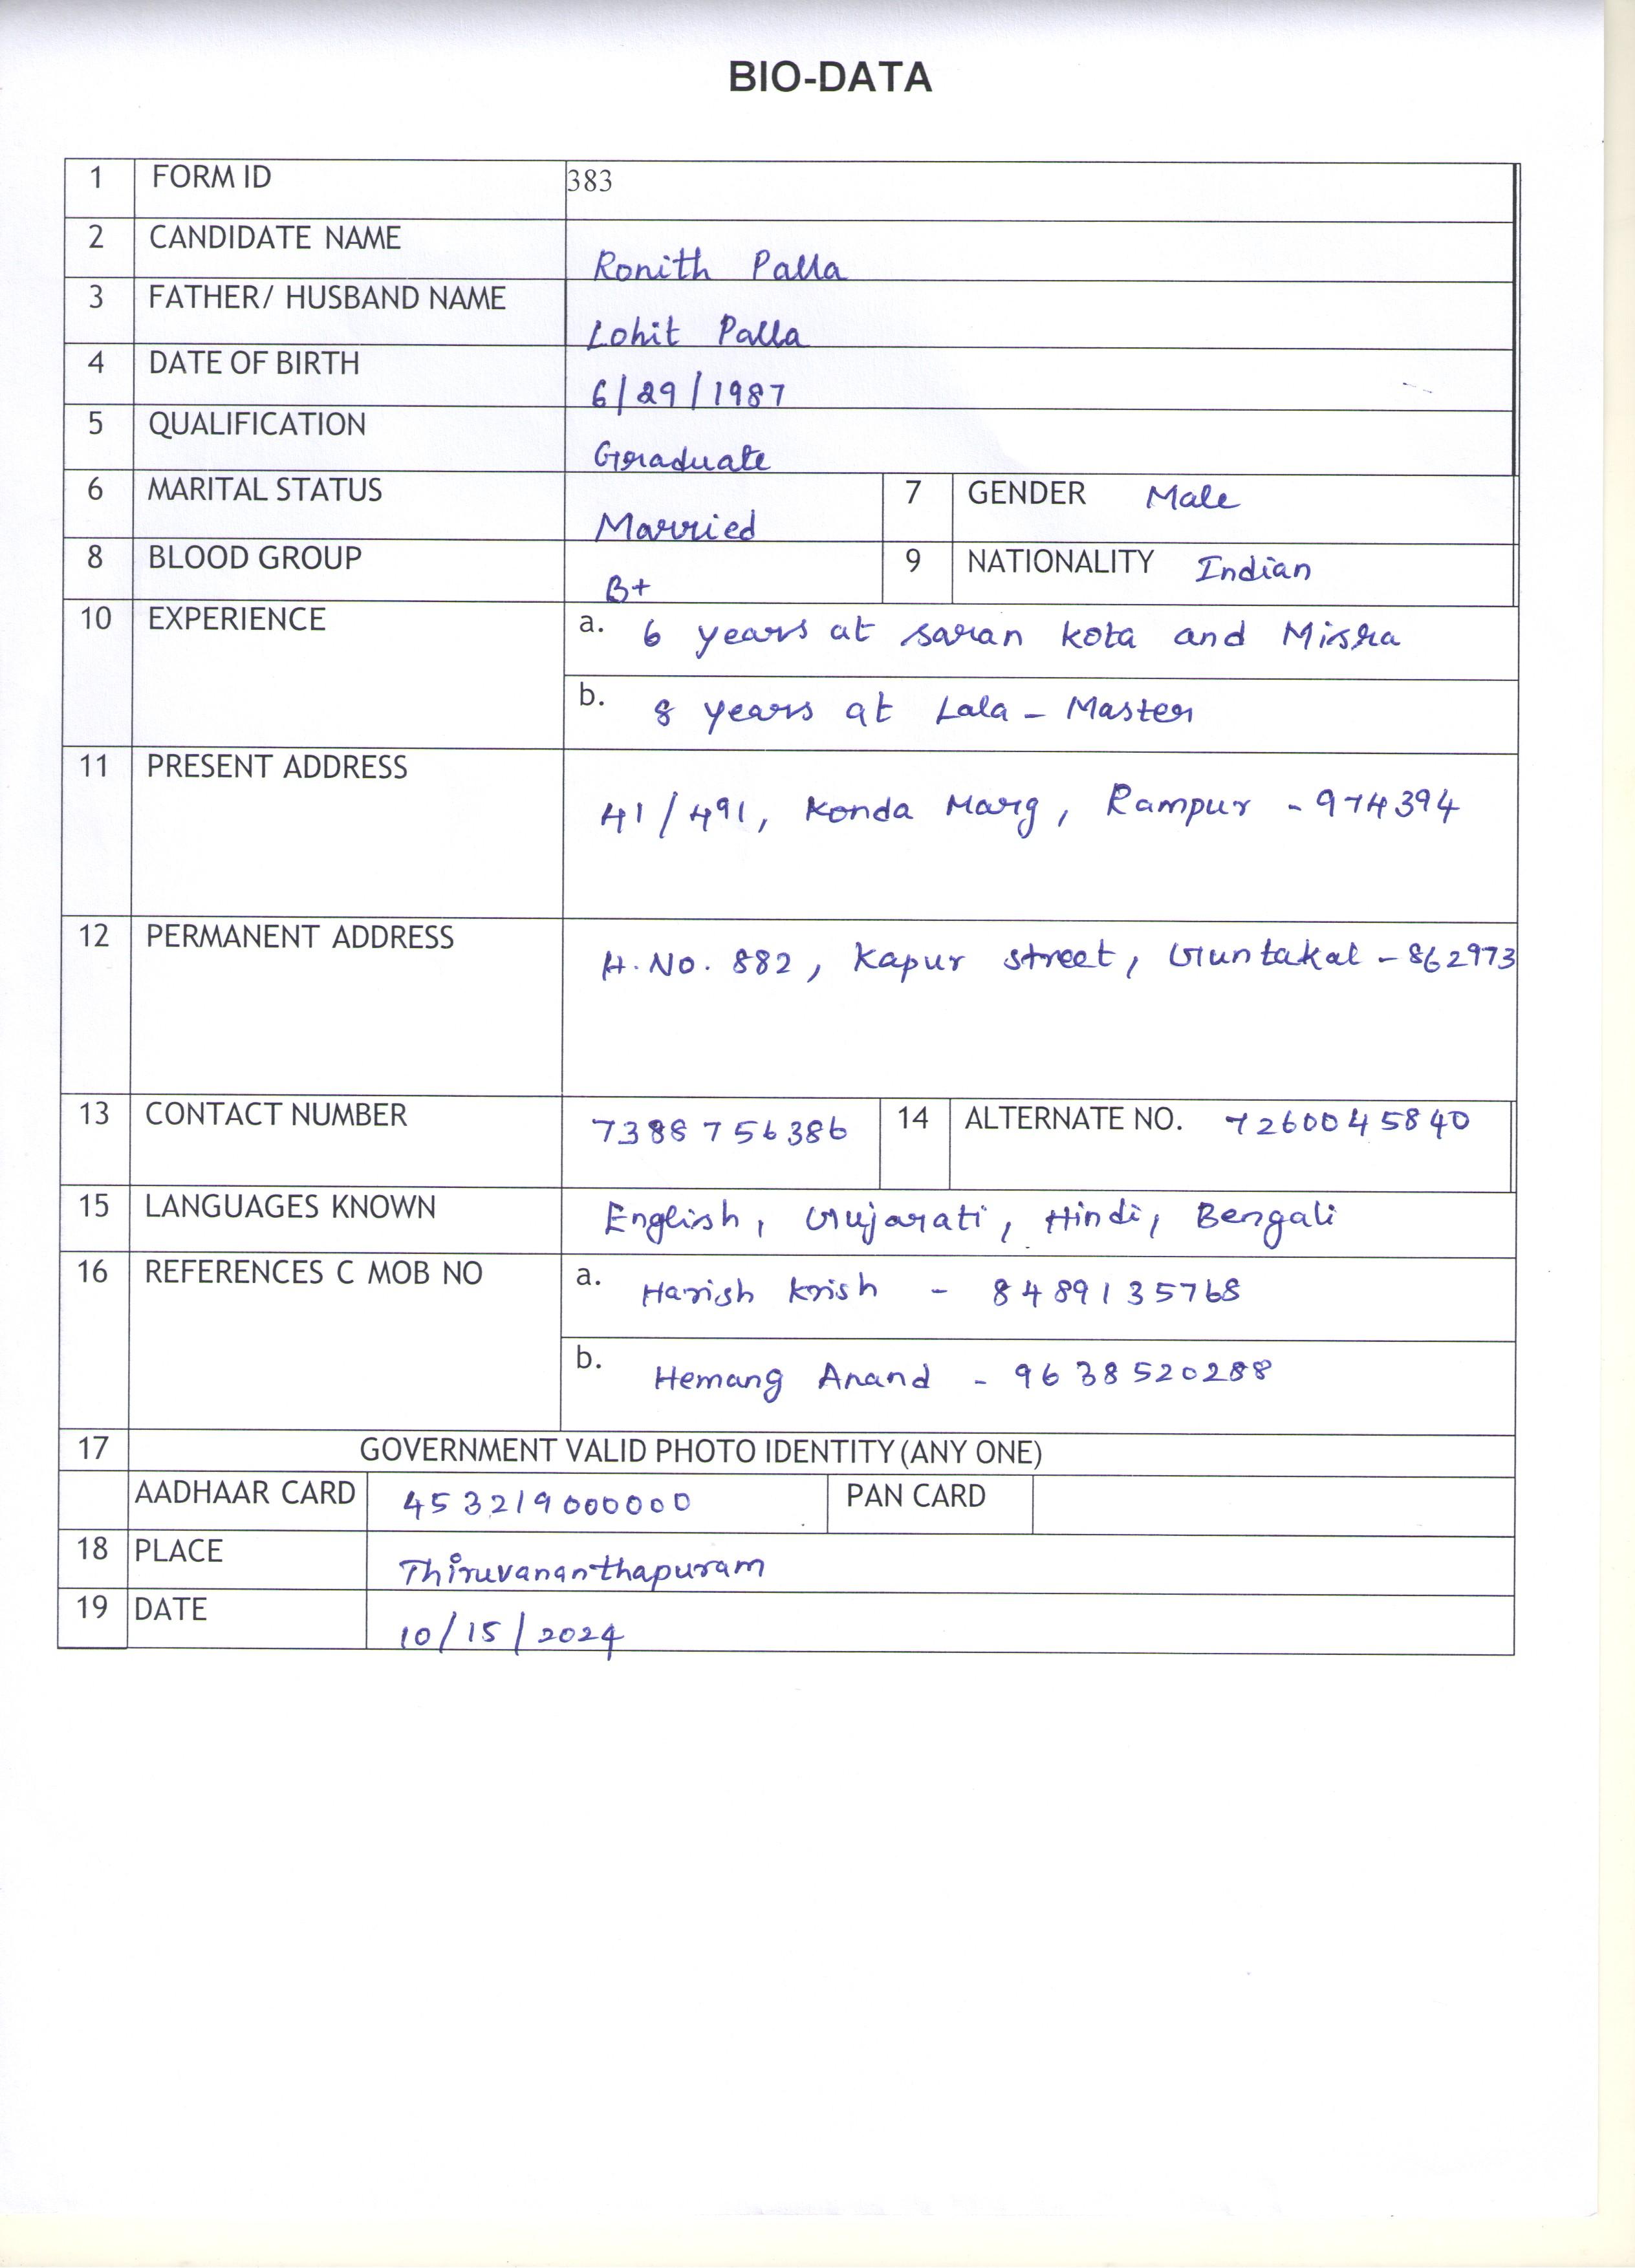 BIO-DATA
1 FORM ID 383
2 CANDIDATE NAME Ronith Palla
3 FATHER/ HUSBAND NAME Lohit Palla
4 DATE OF BIRTH 6/29/1987
5 QUALIFICATION Graduate
6 MARITAL STATUS Married 7 GENDER Male
8 BLOOD GROUP B+ 9 NATIONALITY Indian
10 EXPERIENCE a. 6 years at saran kota and Misra
b. 8 years at Lala - Master
11 PRESENT ADDRESS 41/491, Konda Marg, Rampur - 974394
12 PERMANENT ADDRESS H.No. 882, Kapur street, Guntakal - 862973
13 CONTACT NUMBER 7388756386 14 ALTERNATE NO. 7260045840
15 LANGUAGES KNOWN English, Gujarati, Hindi, Bengali
16 REFERENCES C MOB NO a. Harish Krish - 8489135768
b. Hemang Anand - 9638520288
17 GOVERNMENT VALID PHOTO IDENTITY (ANY ONE)
AADHAAR CARD 453219000000 PAN CARD
18 PLACE Thiruvananthapuram
19 DATE 10/15/2024